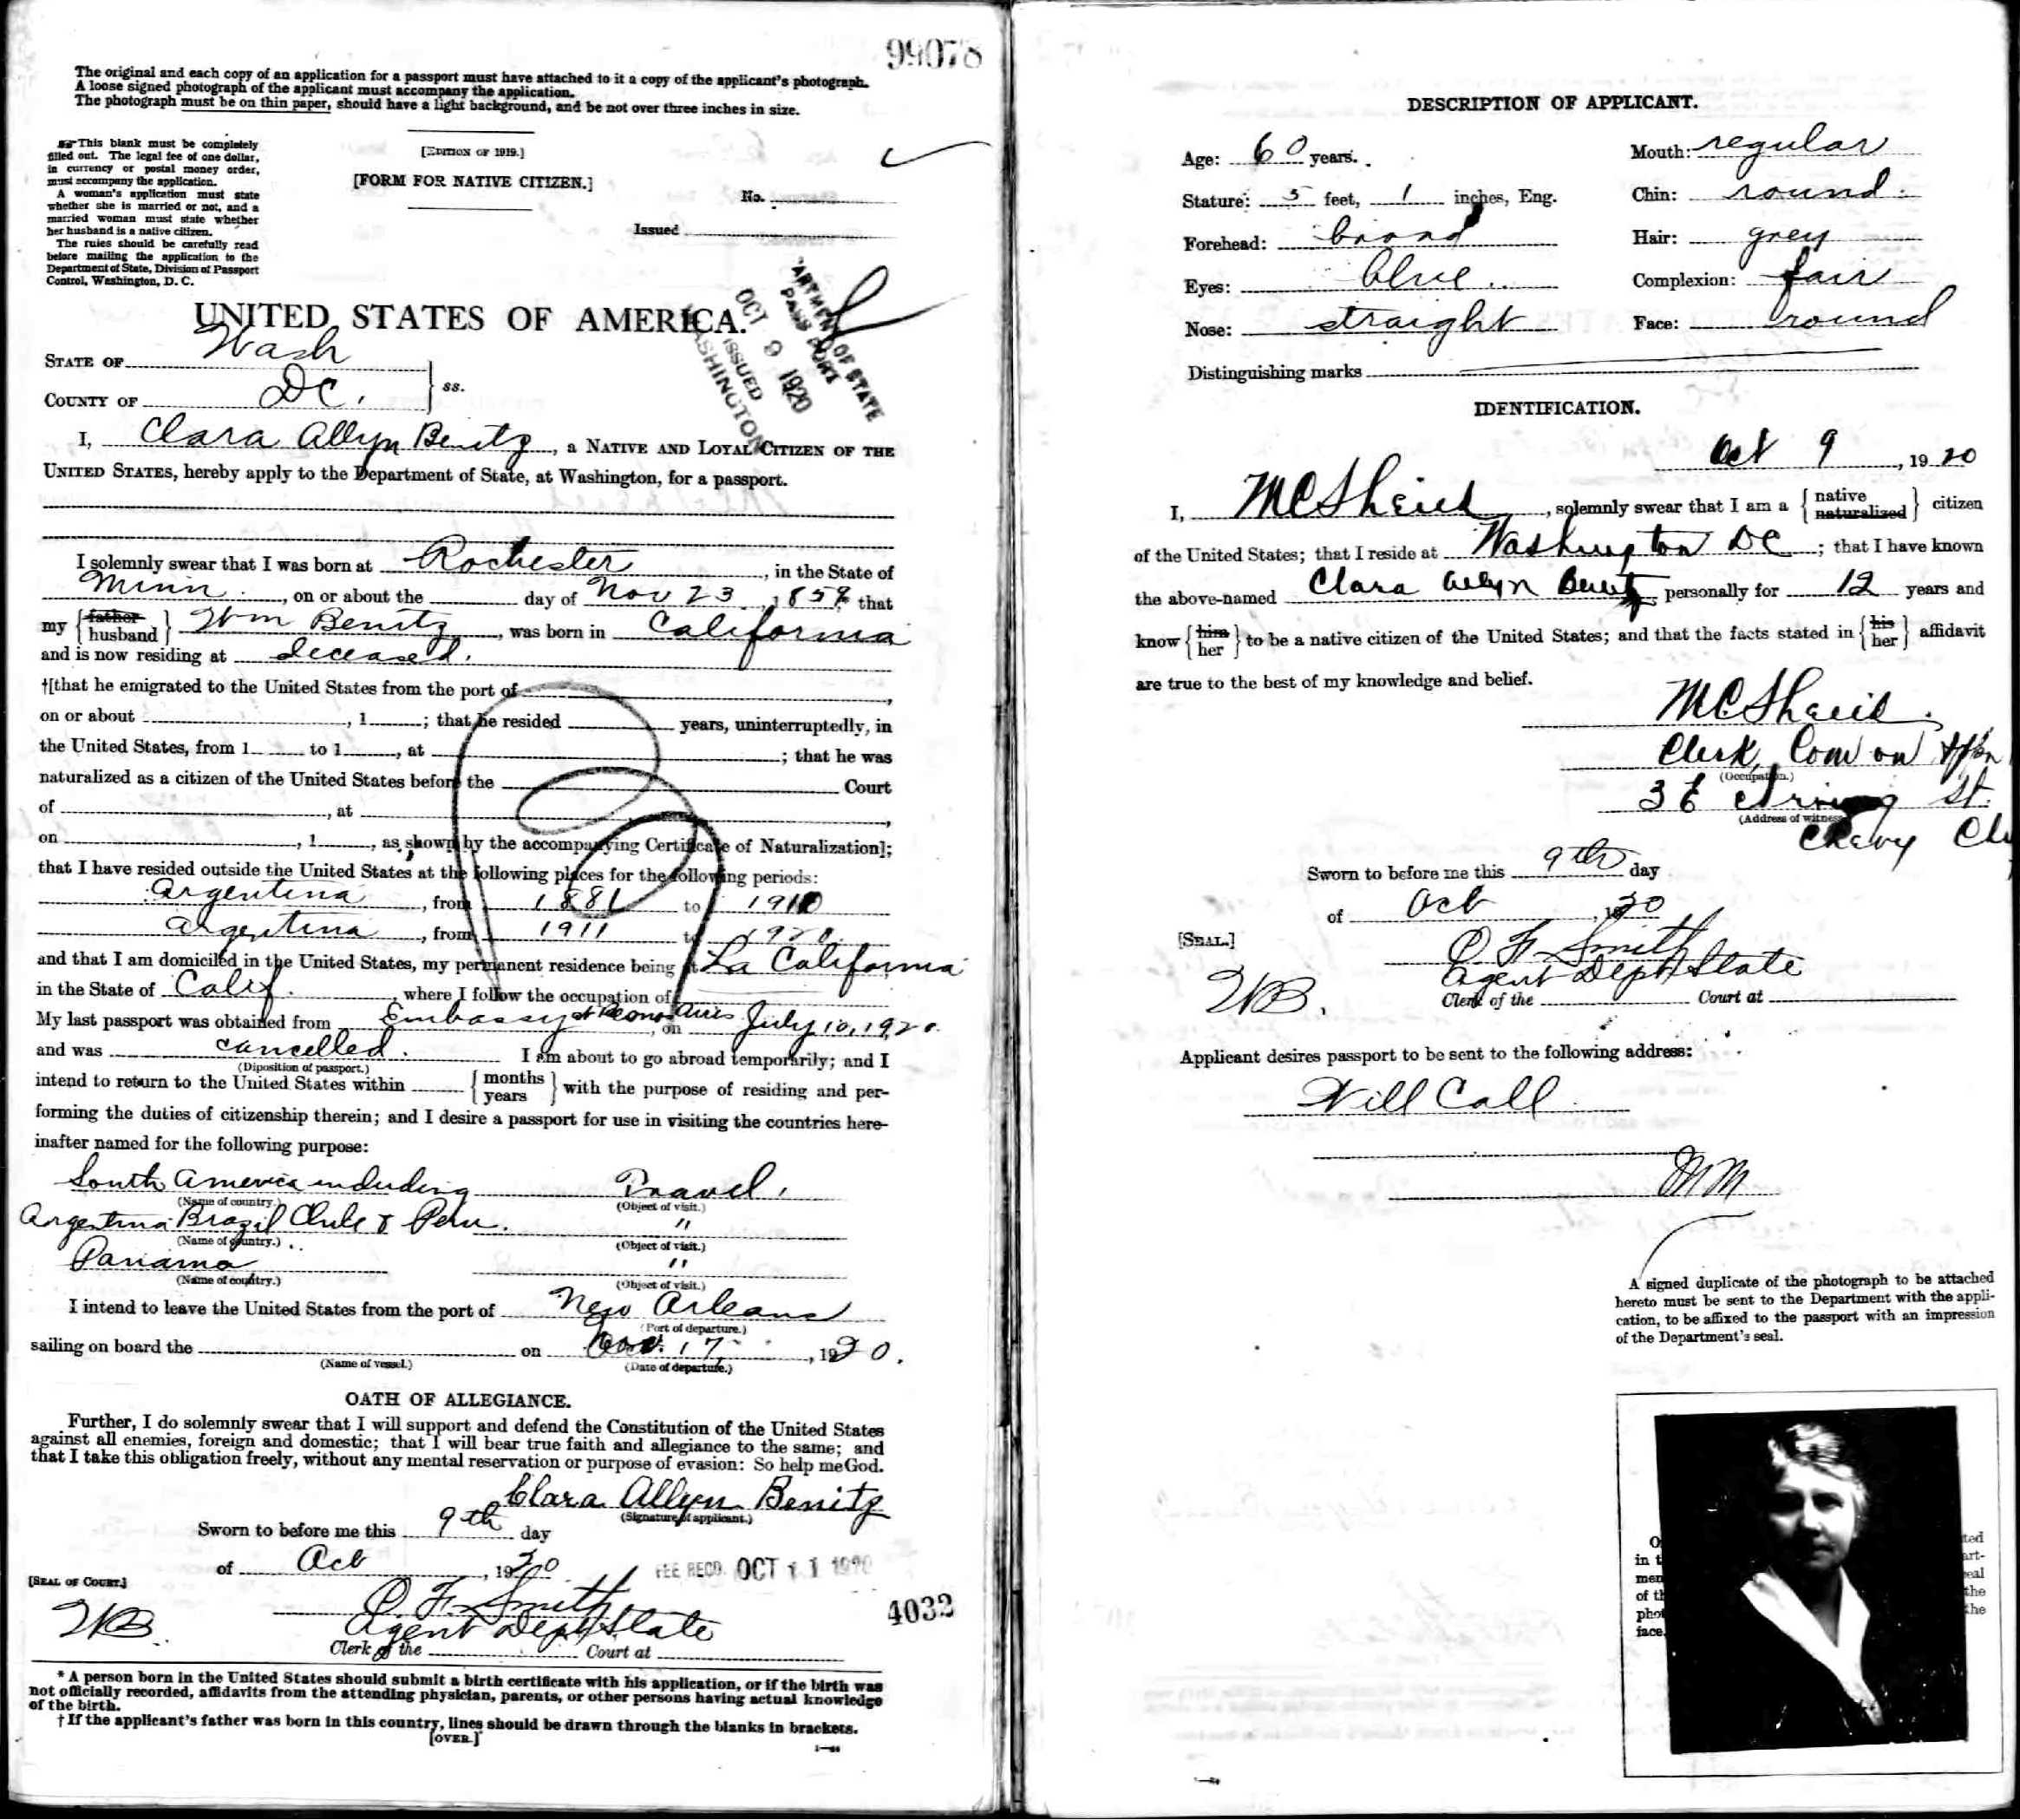 99078
The original and each copy of an application for a passport must have attached to it a copy of the applicant's photograph.
A loose signed photograph of the applicant must accompany the application.
The photograph must be on thin paper, should have a light background, and be not over three inches in size.
This blank must be completely
filled out. The legal fee of one dollar,
in currency or postal money order,
must accompany the application.
A woman's application must state
whether she is married or not, and a
married woman must state whether
her husband is a native citizen.
The rules should be carefully read
before mailing the application to the
Department of State, Division of Passport
Control, Washington, D. C.
[EDITION OF 1919.]
[FORM FOR NATIVE CITIZEN.]
No.
Issued
UNITED STATES OF AMERICA.
ARTMENT OF STATE
PASSPORT
OCT 9 1920
ISSUED
WASHINGTON
STATE OF Wash
COUNTY OF DC. } ss.
I, Clara Allyn Benitz, a NATIVE AND LOYAL CITIZEN OF THE
UNITED STATES, hereby apply to the Department of State, at Washington, for a passport.
I solemnly swear that I was born at Rochester, in the State of
Minn., on or about the day of Nov 23, 1859 that
my { father husband } Wm Benitz, was born in California
and is now residing at deceased.
†[that he emigrated to the United States from the port of ,
on or about , 1 ; that he resided years, uninterruptedly, in
the United States, from 1 to 1 , at ; that he was
naturalized as a citizen of the United States before the Court
of , at ,
on , 1 , as shown by the accompanying Certificate of Naturalization];
that I have resided outside the United States at the following places for the following periods:
Argentina, from 1881 to 1910
Argentina, from 1911 to 1920.
and that I am domiciled in the United States, my permanent residence being at La California
in the State of Calif., where I follow the occupation of
My last passport was obtained from Embassy at Buenos Aires, on July 10, 1920
and was cancelled. I am about to go abroad temporarily; and I
(Diposition of passport.)
intend to return to the United States within { months years } with the purpose of residing and per-
forming the duties of citizenship therein; and I desire a passport for use in visiting the countries here-
inafter named for the following purpose:
South America including Travel.
(Name of country.) (Object of visit.)
Argentina Brazil Chile & Peru. "
(Name of country.) (Object of visit.)
Panama "
(Name of country.) (Object of visit.)
I intend to leave the United States from the port of New Orleans
(Port of departure.)
sailing on board the on Nov. 17, 1920.
(Name of vessel.) (Date of departure.)
OATH OF ALLEGIANCE.
Further, I do solemnly swear that I will support and defend the Constitution of the United States
against all enemies, foreign and domestic; that I will bear true faith and allegiance to the same; and
that I take this obligation freely, without any mental reservation or purpose of evasion: So help me God.
Clara Allyn Benitz
(Signature of applicant.)
Sworn to before me this 9th day
of Oct, 1920
FEE RECD. OCT 11 1920
[SEAL OF COURT.]
4032
O. F. Smith
Agent Dept State
Clerk of the Court at
* A person born in the United States should submit a birth certificate with his application, or if the birth was
not officially recorded, affidavits from the attending physician, parents, or other persons having actual knowledge
of the birth.
† If the applicant's father was born in this country, lines should be drawn through the blanks in brackets.
[OVER.]
DESCRIPTION OF APPLICANT.
Age: 60 years.
Mouth: regular
Stature: 5 feet, 1 inches, Eng.
Chin: round
Forehead: broad
Hair: grey
Eyes: blue
Complexion: fair
Nose: straight
Face: round
Distinguishing marks
IDENTIFICATION.
Oct 9, 1920
I, , solemnly swear that I am a { native naturalized } citizen
of the United States; that I reside at Washington DC; that I have known
the above-named Clara Allyn Benitz personally for 12 years and
know { him her } to be a native citizen of the United States; and that the facts stated in { his her } affidavit
are true to the best of my knowledge and belief.
Clerk, Com on
(Occupation.)
36 Irving St.
(Address of witness.)
Chevy
Sworn to before me this 9th day
of Oct, 1920
[SEAL.]
O. F. Smith
Agent Dept State
Clerk of the Court at
Applicant desires passport to be sent to the following address:
Will Call
A signed duplicate of the photograph to be attached
hereto must be sent to the Department with the appli-
cation, to be affixed to the passport with an impression
of the Department's seal.